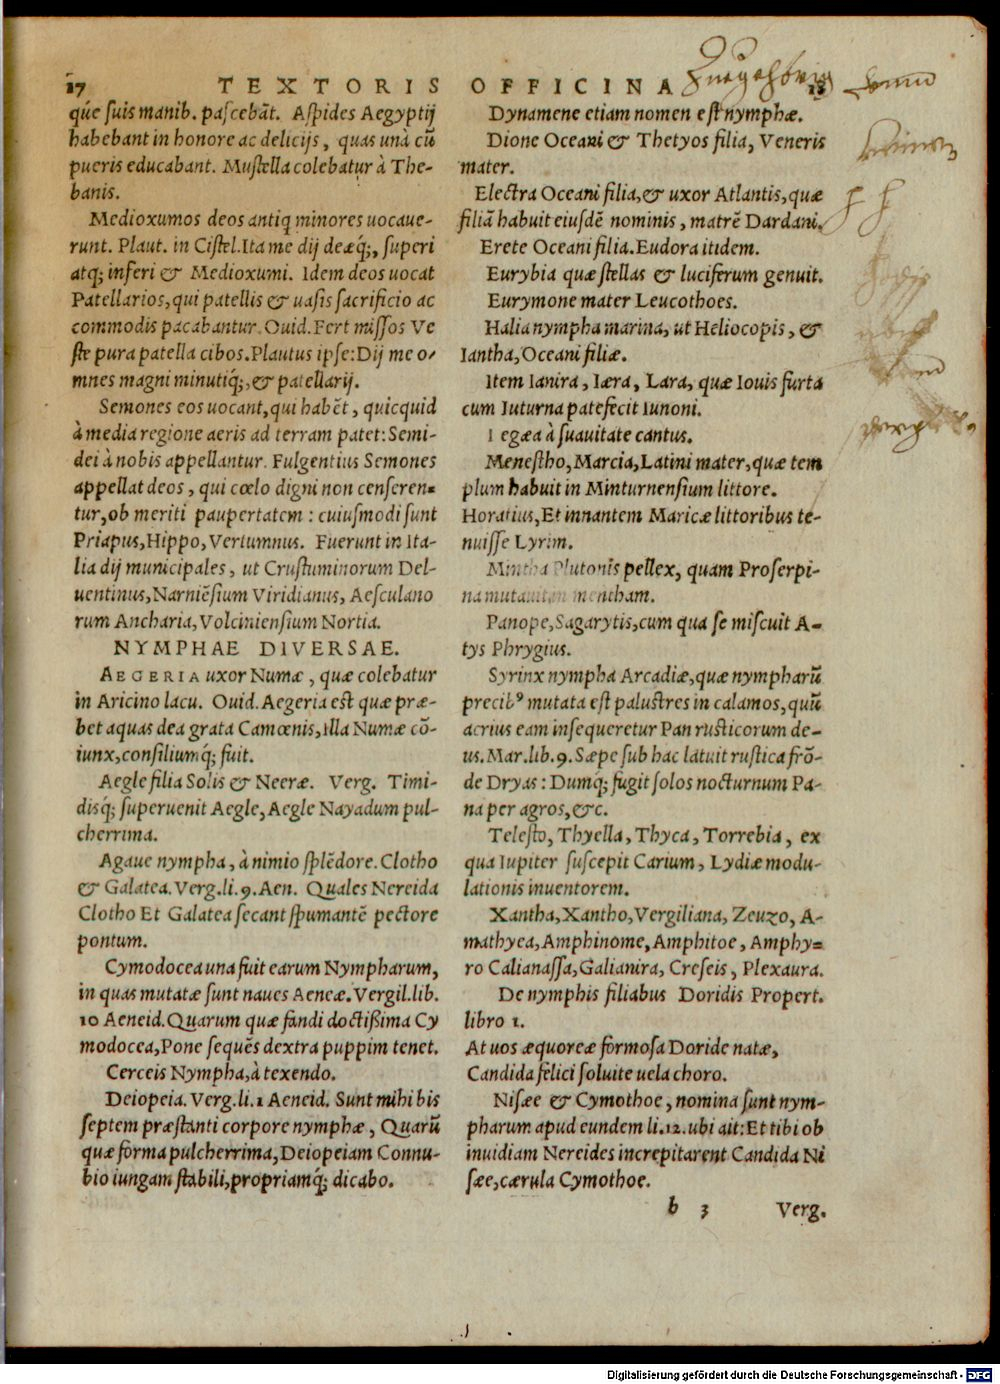 17 TEXTORIS OFFICINA 18
q́ue suis manib. pascebãt. Aspides Aegyptij
habebant in honore ac delicijs, quas unà cũ
pueris educabant. Mustella colebatur à The-
banis.
Medioxumos deos antiq minores uocaue-
runt. Plaut. in Cistel. Ita me dij deæq́;, superi
atq; inferi & Medioxumi. Idem deos uocat
Patellarios, qui patellis & uasis sacrificio ac
commodis pacabantur. Ouid. Fert missos Ve
stæ pura patella cibos. Plautus ipse: Dij me o-
mnes magni minutiq́;, & patellarij.
Semones eos uocant, qui habẽt, quicquid
à media regione aeris ad terram patet: Semi-
dei à nobis appellantur. Fulgentius Semones
appellat deos, qui cœlo digni non censeren-
tur, ob meriti paupertatem: cuiusmodi sunt
Priapus, Hippo, Vertumnus. Fuerunt in Ita-
lia dij municipales, ut Crustuminorum Del-
uentinus, Narniẽsium Viridianus, Aesculano
rum Ancharia, Volciniensium Nortia.
NYMPHAE DIVERSAE.
AEGERIA uxor Numæ, quæ colebatur
in Aricino lacu. Ouid. Aegeria est quæ præ-
bet aquas dea grata Camœnis, Illa Numæ cõ-
iunx, consiliumq́; fuit.
Aegle filia Solis & Neeræ. Verg. Timi-
disq́; superuenit Aegle, Aegle Nayadum pul-
cherrima.
Agaue nympha, à nimio splẽdore. Clotho
& Galatea. Verg. li. 9. Aen. Quales Nereida
Clotho Et Galatea secant spumantẽ pectore
pontum.
Cymodocea una fuit earum Nympharum,
in quas mutatæ sunt naues Aeneæ. Vergil. lib.
10 Aeneid. Quarum quæ fandi doctißima Cy
modocea, Pone sequẽs dextra puppim tenet.
Cerceis Nympha, à texendo.
Deiopeia. Verg. li. 1 Aeneid. Sunt mihi bis
septem præstanti corpore nymphæ, Quarũ
quæ forma pulcherrima, Deiopeiam Connu-
bio iungam stabili, propriamq́; dicabo.
Dynamene etiam nomen est nymphæ.
Dione Oceani & Thetyos filia, Veneris
mater.
Electra Oceani filia, & uxor Atlantis, quæ
filiã habuit eiusdẽ nominis, matrẽ Dardani.
Erete Oceani filia. Eudora itidem.
Eurybia quæ stellas & luciferum genuit.
Eurymone mater Leucothoes.
Halia nympha marina, ut Heliocopis, &
Iantha, Oceani filiæ.
Item Ianira, Iæra, Lara, quæ Iouis furta
cum Iuturna patefecit Iunoni.
Legæa à suauitate cantus.
Menestho, Marcia, Latini mater, quæ tem
plum habuit in Minturnensium littore.
Horatius, Et innantem Maricæ littoribus te-
nuisse Lyrim.
Mintha Plutonis pellex, quam Proserpi-
na mutauit in mentham.
Panope, Sagarytis, cum qua se miscuit A-
tys Phrygius.
Syrinx nympha Arcadiæ, quæ nympharũ
precibꝰ mutata est palustres in calamos, quũ
acrius eam insequeretur Pan rusticorum de-
us. Mar. lib. 9. Sæpe sub hac latuit rustica frõ-
de Dryas: Dumq́; fugit solos nocturnum Pa-
na per agros, &c.
Telesto, Thyella, Thyca, Torrebia, ex
qua Iupiter suscepit Carium, Lydiæ modu-
lationis inuentorem.
Xantha, Xantho, Vergiliana, Zeuzo, A-
mathyea, Amphinome, Amphitoe, Amphy-
ro Calianassa, Galianira, Creseis, Plexaura.
De nymphis filiabus Doridis Propert.
libro 1.
At uos æquoreæ formosa Doride natæ,
Candida felici soluite uela choro.
Nisæe & Cymothoe, nomina sunt nym-
pharum apud eundem li. 12. ubi ait: Et tibi ob
inuidiam Nereides increpitarent Candida Ni
sæe, cærula Cymothoe.
b 3 Verg.
Digitalisierung gefördert durch die Deutsche Forschungsgemeinschaft - DFG